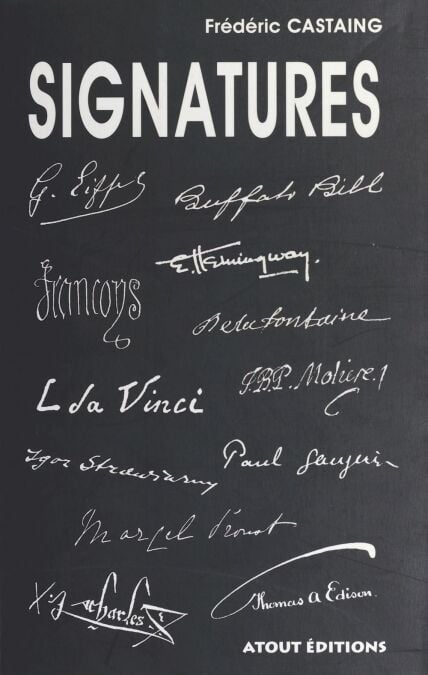 Frédéric CASTAING
SIGNATURES
G. Eiffel
Buffalo Bill
E. Hemingway.
Françoys
De la fontaine
L da Vinci
J.B.P. Moliere.
Igor Strawinsky
Paul Gauguin
Marcel Proust
Charles
Thomas A Edison.
ATOUT ÉDITIONS